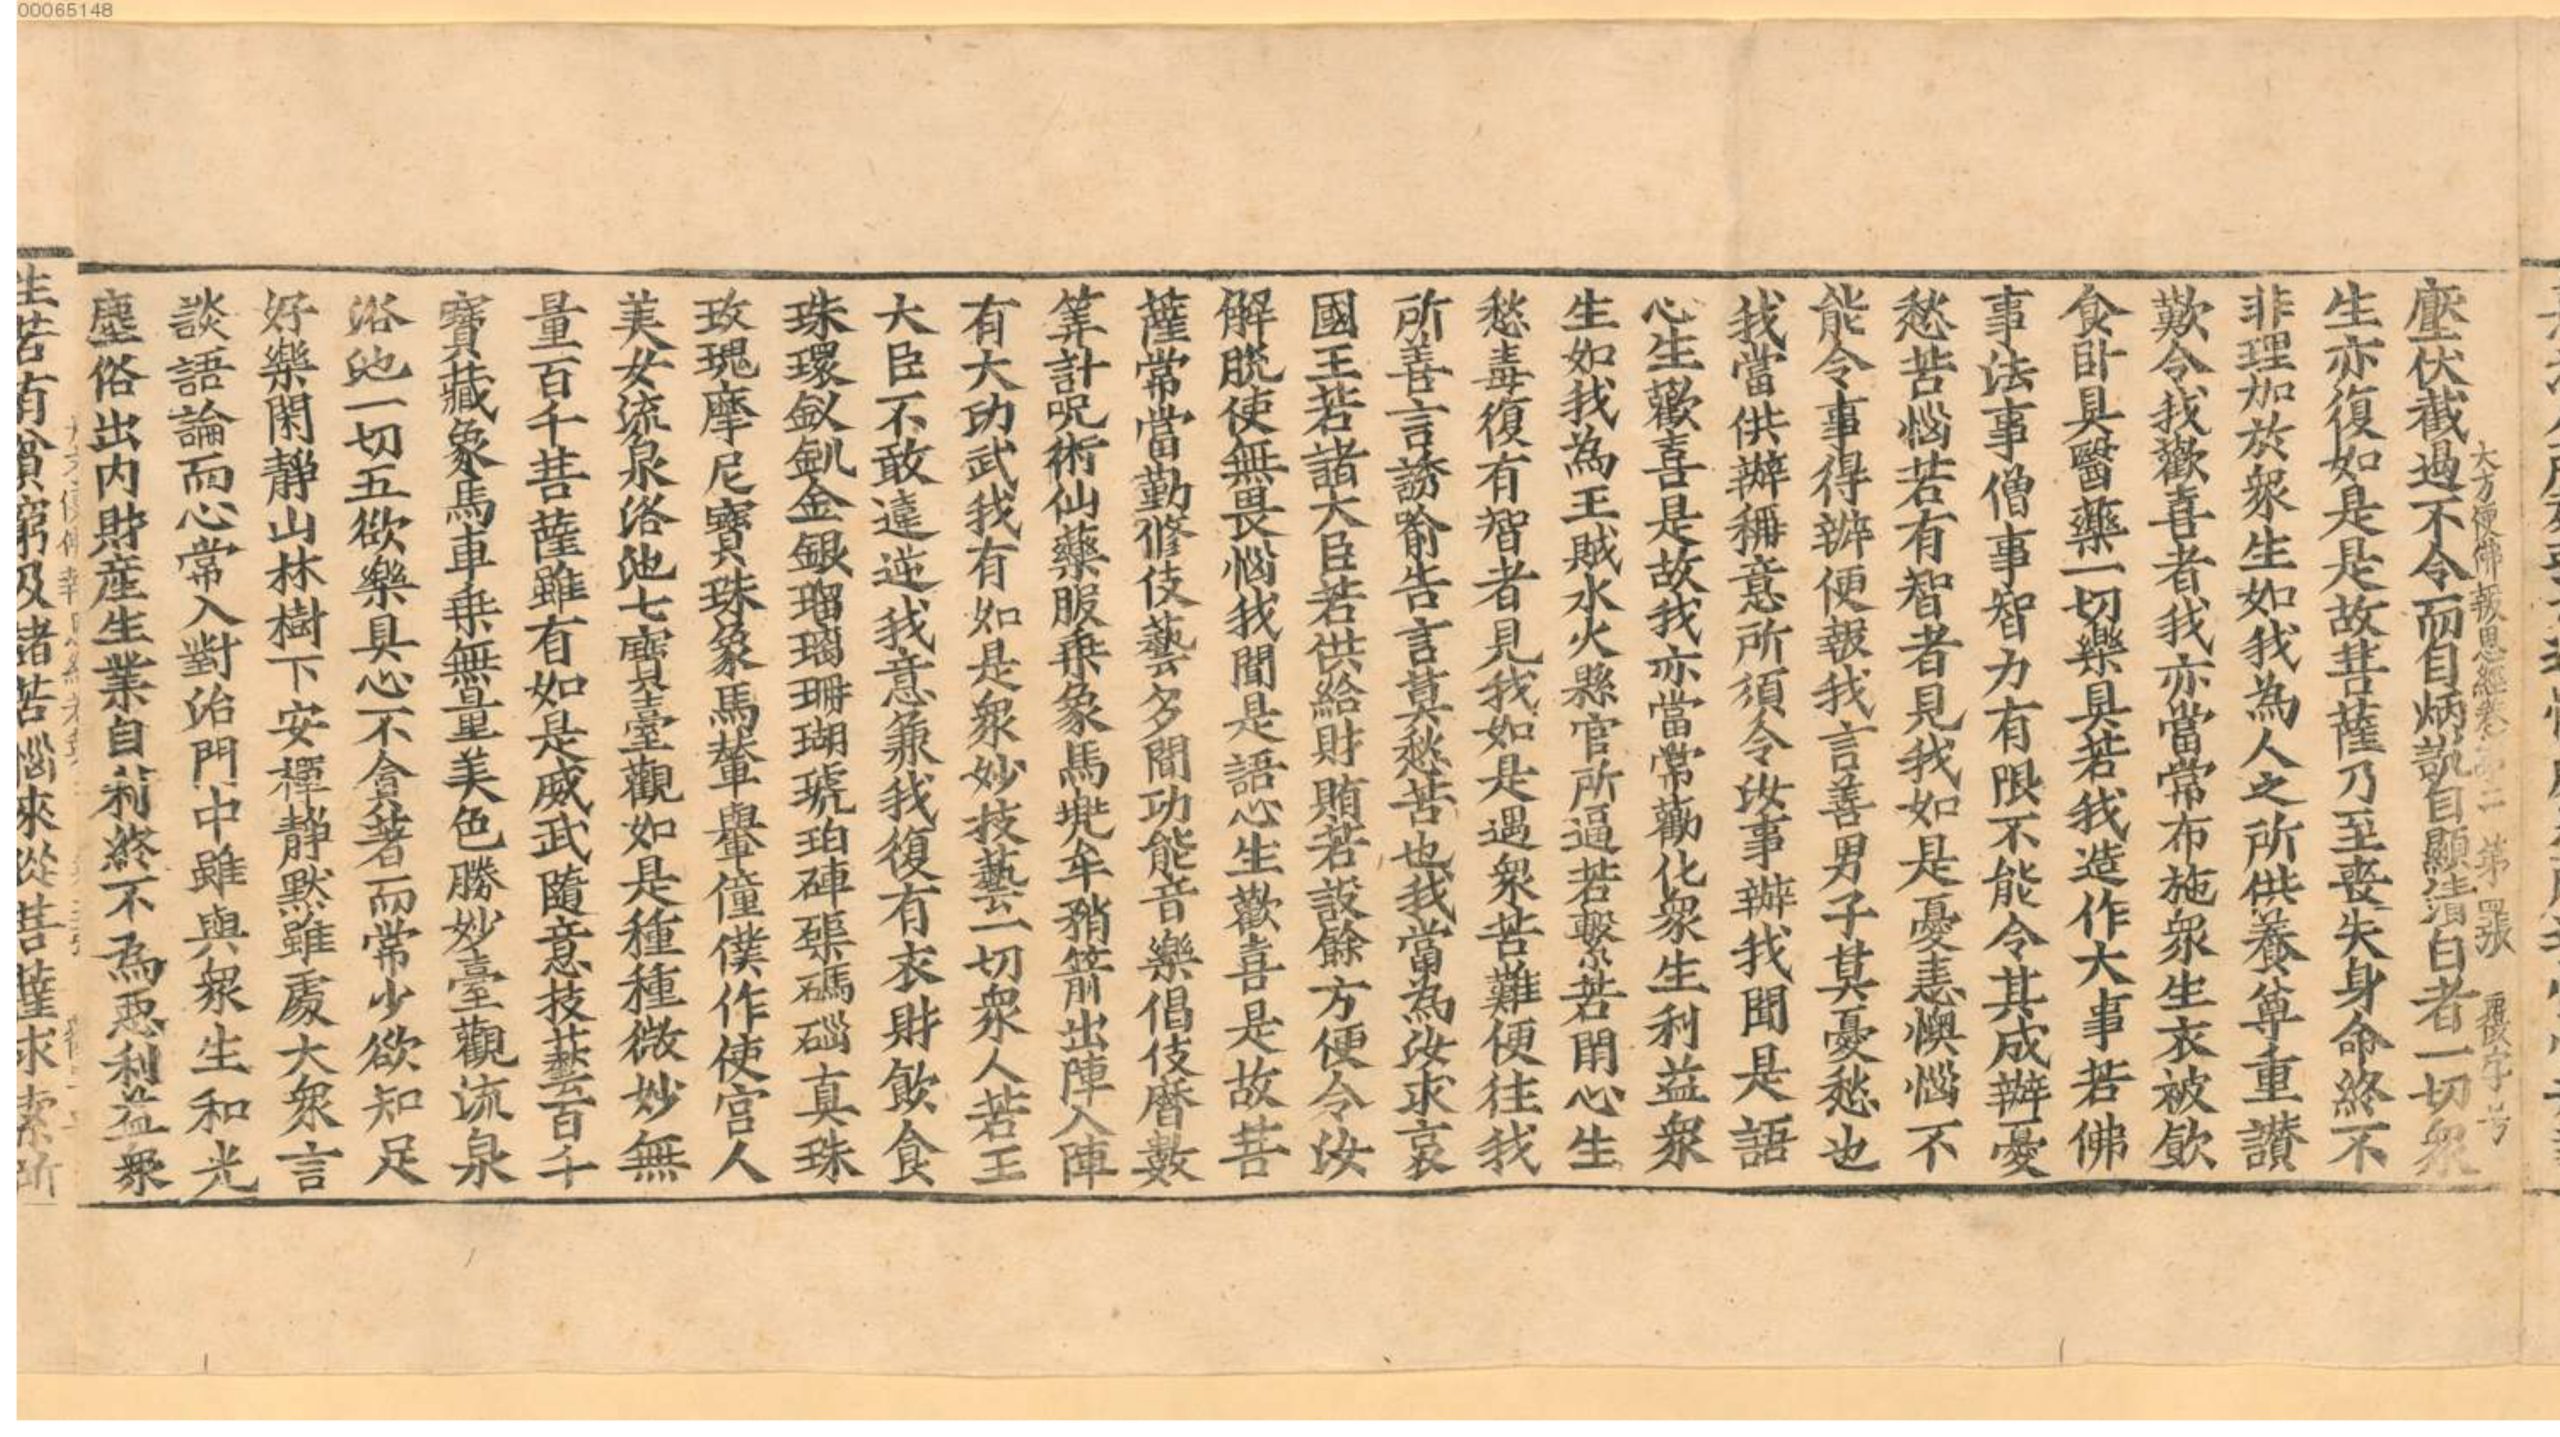 00065148
大方便佛報恩經卷第二 第四張 覆字号
壓伏截過不令而自炳說自顯清白者一切衆
生亦復如是是故菩薩乃至喪失身命終不
非理加於衆生如我為人之所供養尊重讃
歎令我歡喜者我亦當常布施衆生衣被飲
食卧具醫藥一切樂具若我造作大事若佛
事法事僧事智力有限不能令其成辦憂
愁苦惱若有智者見我如是憂恚懊惱不
能令事得辦便報我言善男子莫憂愁也
我當供辦稱意所須令汝事辦我聞是語
心生歡喜是故我亦當常勸化衆生利益衆
生如我為王賊水火縣官所逼若繫若閇心生
愁毒復有智者見我如是遇衆苦難便往我
所善言誘喻告言莫愁苦也我當為汝求哀
國王若諸大臣若供給財賄若設餘方便令汝
解脫使無畏惱我聞是語心生歡喜是故菩
薩常當勤修伎藝多聞功能音樂倡伎曆數
筭計呪術仙藥服乗象馬兠牟矟箭出陣入陣
有大功武我有如是衆妙技藝一切衆人若王
大臣不敢違逆我意兼我復有衣財飲食
珠環釵釧金銀瑠璃珊瑚琥珀硨磲碼碯真珠
玫瑰摩尼寶珠象馬輦轝僮僕作使宫人
美女流泉浴池七寶臺觀如是種種微妙無
量百千菩薩雖有如是威武隨意技藝百千
寶藏象馬車乗無量美色勝妙臺觀流泉
浴池一切五欲樂具心不貪著而常少欲知足
好樂閑靜山林樹下安禪靜默雖處大衆言
談語論而心常入對治門中雖與衆生和光
塵俗出内財産生業自利終不為惡利益衆
生若有貧窮及諸苦惱來從菩薩求索所